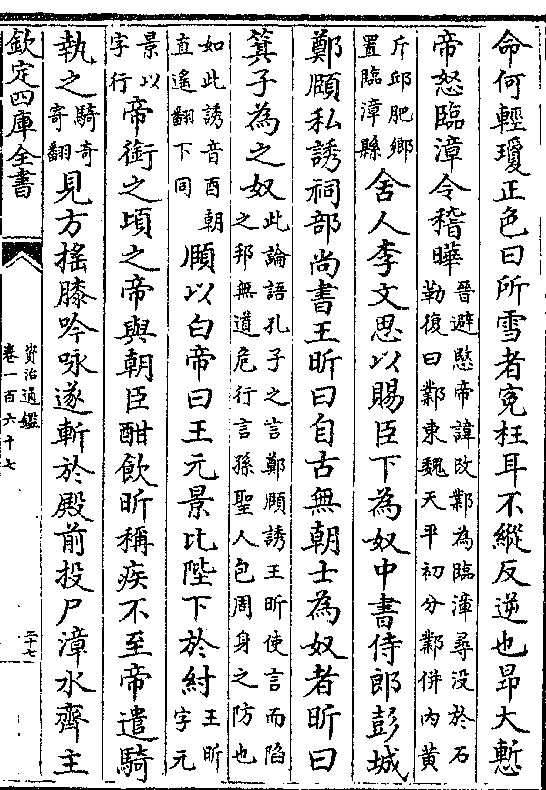 命何輕瓊正色曰所雪者寃枉耳不縱反逆也昻大慙
帝怒臨漳令稽曄晉避愍帝諱改鄴為臨漳尋没於石勒復曰鄴東魏天平初分鄴併内黄
斥邱肥鄉置臨漳縣舍人李文思以賜臣下為奴中書侍郎彭城
鄭頤私誘祠部尚書王昕曰自古無朝士為奴者昕曰
箕子為之奴此論語孔子之言鄭頤誘王昕使言而陷之邦無道危行言孫聖人包周身之防也
如此誘音酉朝直遥翻下同頤以白帝曰王元景比陛下於紂王昕字元
景以字行帝銜之頃之帝與朝臣酣飲昕稱疾不至帝遣騎
執之騎奇寄翻見方揺膝吟咏遂斬於殿前投尸漳水齊主
欽定四庫全書
資治通鑑
卷一百六十七
三十七